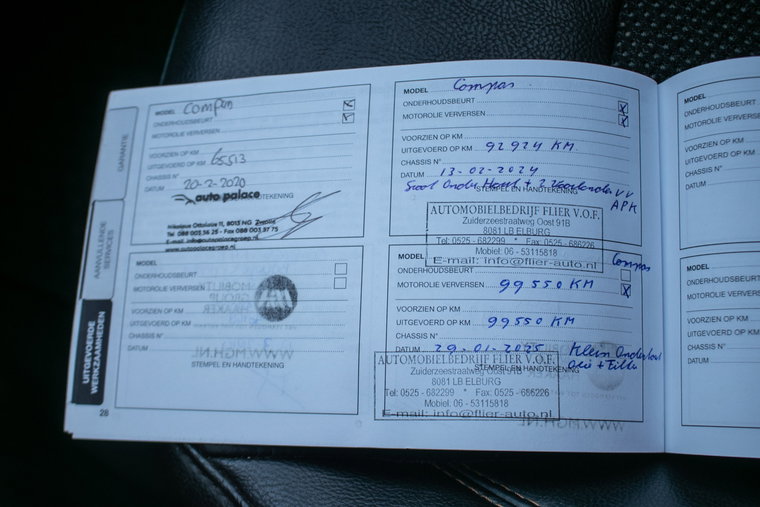 GARANTIE
AANVULLENDE
SERVICES
UITGEVOERDE
WERKZAAMHEDEN
MODEL
ONDERHOUDSBEURT
MOTOROLIE VERVERSEN
VOORZIEN OP KM
UITGEVOERD OP KM 65513
CHASSIS N°
DATUM 20-2-2020
auto palace
TEKENING
Nikolaus Ottolaan 11, 8013 NG Zwolle
Tel 088 003 36 25 - Fax 088 003 37 75
E-mail: info@autopalacegroep.nl
www.autopalacegroep.nl
MODEL
ONDERHOUDSBEURT
MOTOROLIE VERVERSEN
VOORZIEN OP KM
UITGEVOERD OP KM
CHASSIS N°
DATUM
STEMPEL EN HANDTEKENING
28
MODEL Compas
ONDERHOUDSBEURT X
MOTOROLIE VERVERSEN X
VOORZIEN OP KM
UITGEVOERD OP KM 92924 KM
CHASSIS N°
DATUM 13-02-2024
STEMPEL EN HANDTEKENING
APK
AUTOMOBIELBEDRIJF FLIER V.O.F.
Zuiderzeestraatweg Oost 91B
8081 LB ELBURG
Tel: 0525 - 682299 * Fax: 0525 - 686226
Mobiel: 06 - 53115818
E-mail: info@flier-auto.nl
MODEL Compas
ONDERHOUDSBEURT
MOTOROLIE VERVERSEN 99550 KM X
VOORZIEN OP KM
UITGEVOERD OP KM 99550 KM
CHASSIS N°
DATUM 29-01-2025 Klein Onderhoud
STEMPEL EN HANDTEKENING
AUTOMOBIELBEDRIJF FLIER V.O.F.
Zuiderzeestraatweg Oost 91B
8081 LB ELBURG
Tel: 0525 - 682299 * Fax: 0525 - 686226
Mobiel: 06 - 53115818
E-mail: info@flier-auto.nl
MODEL
ONDERHOUDSBEURT
MOTOROLIE VERVERSEN
VOORZIEN OP KM
UITGEVOERD OP KM
CHASSIS N°
DATUM
MODEL
ONDERHOUDSBEURT
VOORZIEN OP KM
UITGEVOERD OP KM
CHASSIS N°
DATUM